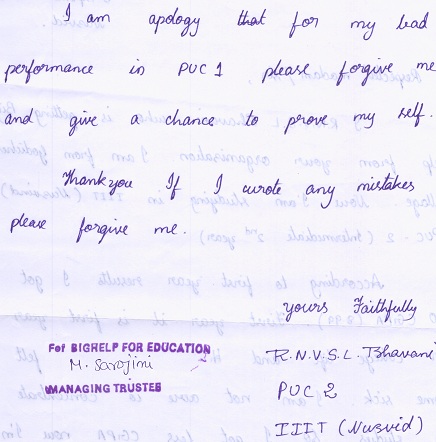 I am apology that for my bad
performance in PUC 1 please forgive me
and give a chance to prove my self.
Thank you If I wrote any mistakes
please forgive me.
yours Faithfully
For BIGHELP FOR EDUCATION
M. Sarojini
MANAGING TRUSTEE
R.N.V.S.L. Bhavani
PUC 2
IIIT (Nuzvid)